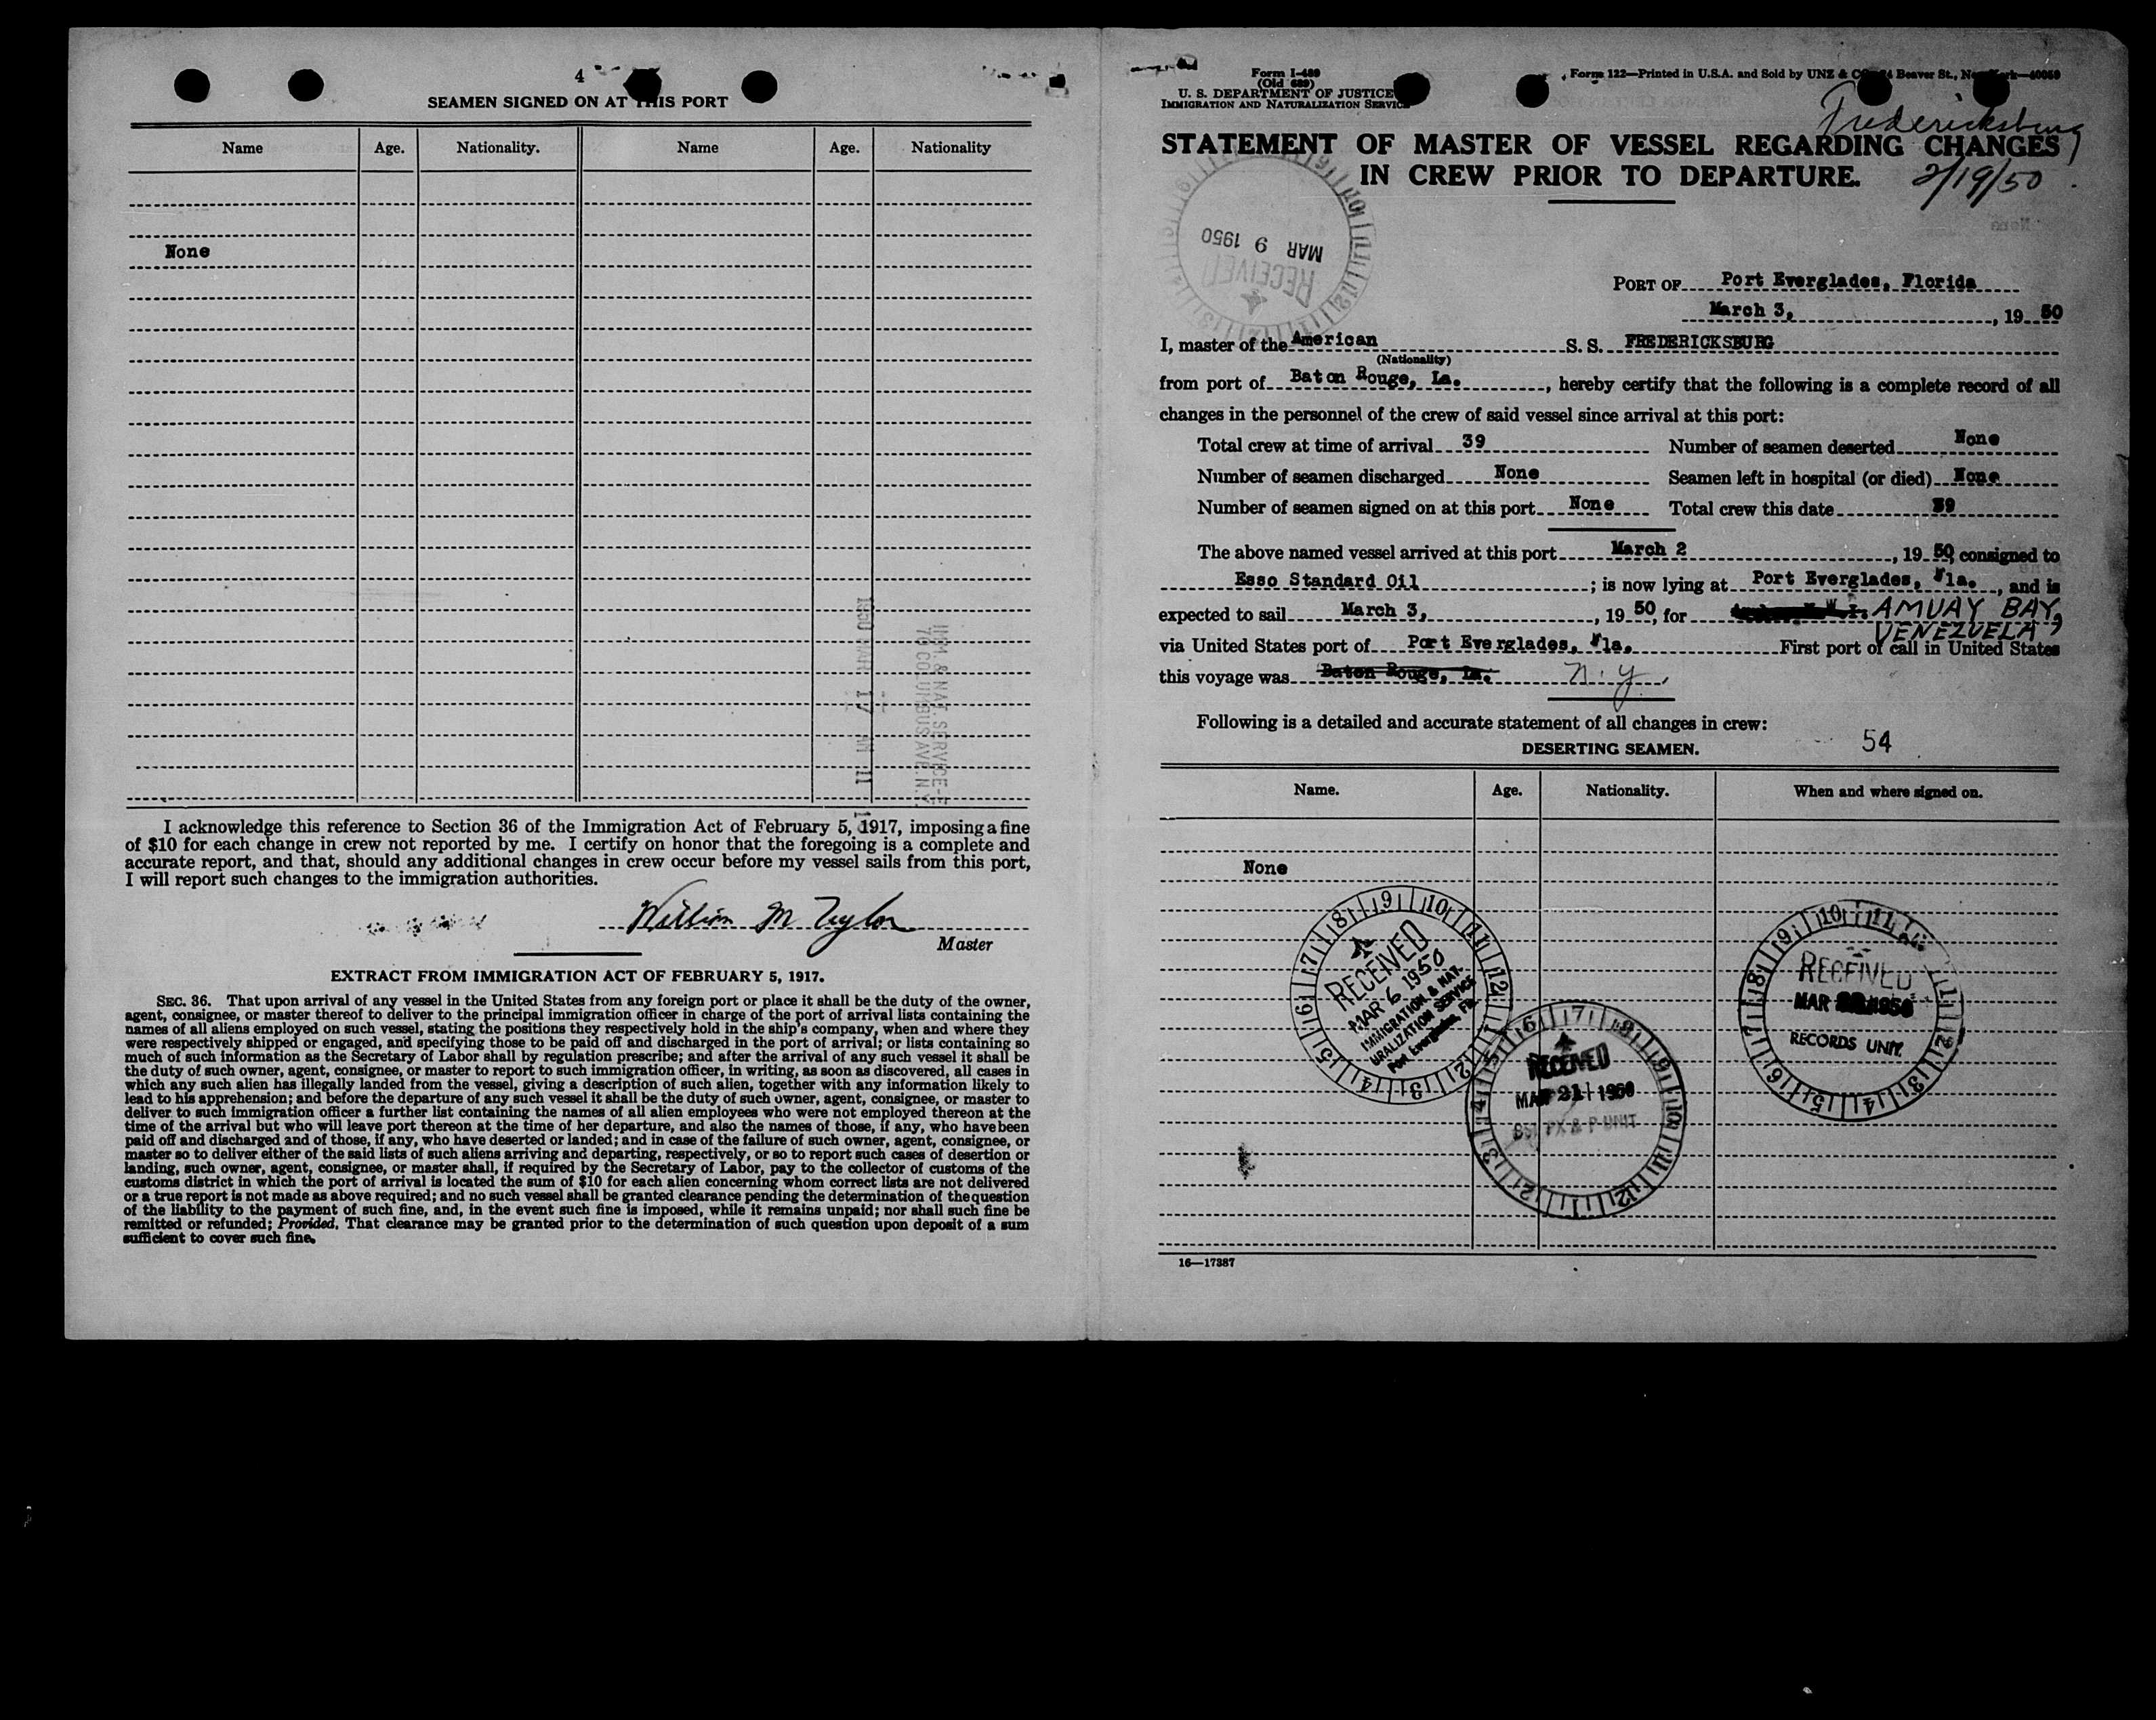 4
SEAMEN SIGNED ON AT THIS PORT
Name Age. Nationality. Name Age. Nationality
None
1950 MAR 17 AM 11
IMM. & NAT. SERVICE
70 COLUMBUS AVE. N.Y.
I acknowledge this reference to Section 36 of the Immigration Act of February 5, 1917, imposing a fine
of $10 for each change in crew not reported by me. I certify on honor that the foregoing is a complete and
accurate report, and that, should any additional changes in crew occur before my vessel sails from this port,
I will report such changes to the immigration authorities.
William M Taylor
Master
EXTRACT FROM IMMIGRATION ACT OF FEBRUARY 5, 1917.
SEC. 36. That upon arrival of any vessel in the United States from any foreign port or place it shall be the duty of the owner,
agent, consignee, or master thereof to deliver to the principal immigration officer in charge of the port of arrival lists containing the
names of all aliens employed on such vessel, stating the positions they respectively hold in the ship's company, when and where they
were respectively shipped or engaged, and specifying those to be paid off and discharged in the port of arrival; or lists containing so
much of such information as the Secretary of Labor shall by regulation prescribe; and after the arrival of any such vessel it shall be
the duty of such owner, agent, consignee, or master to report to such immigration officer, in writing, as soon as discovered, all cases in
which any such alien has illegally landed from the vessel, giving a description of such alien, together with any information likely to
lead to his apprehension; and before the departure of any such vessel it shall be the duty of such owner, agent, consignee, or master to
deliver to such immigration officer a further list containing the names of all alien employees who were not employed thereon at the
time of the arrival but who will leave port thereon at the time of her departure, and also the names of those, if any, who have been
paid off and discharged and of those, if any, who have deserted or landed; and in case of the failure of such owner, agent, consignee, or
master so to deliver either of the said lists of such aliens arriving and departing, respectively, or so to report such cases of desertion or
landing, such owner, agent, consignee, or master shall, if required by the Secretary of Labor, pay to the collector of customs of the
customs district in which the port of arrival is located the sum of $10 for each alien concerning whom correct lists are not delivered
or a true report is not made as above required; and no such vessel shall be granted clearance pending the determination of the question
of the liability to the payment of such fine, and, in the event such fine is imposed, while it remains unpaid; nor shall such fine be
remitted or refunded; Provided, That clearance may be granted prior to the determination of such question upon deposit of a sum
sufficient to cover such fine.
Form I-489
(Old 689)
U. S. DEPARTMENT OF JUSTICE
IMMIGRATION AND NATURALIZATION SERVICE
Form 122—Printed in U.S.A. and Sold by UNZ & CO. 24 Beaver St., New York—40050
Fredericksburg
STATEMENT OF MASTER OF VESSEL REGARDING CHANGES
IN CREW PRIOR TO DEPARTURE.
2/19/50
RECEIVED
MAR 9 1950
PORT OF Port Everglades, Florida
March 3, , 19 50
I, master of the American S. S. FREDERICKSBURG
(Nationality)
from port of Baton Rouge, La. , hereby certify that the following is a complete record of all
changes in the personnel of the crew of said vessel since arrival at this port:
Total crew at time of arrival 39 Number of seamen deserted None
Number of seamen discharged None Seamen left in hospital (or died) None
Number of seamen signed on at this port None Total crew this date 39
The above named vessel arrived at this port March 2 , 19 50, consigned to
Esso Standard Oil ; is now lying at Port Everglades, Fla. , and is
expected to sail March 3, , 19 50, for AMUAY BAY,
VENEZUELA
via United States port of Port Everglades, Fla. First port of call in United States
this voyage was Baton Rouge, La. N.Y.
Following is a detailed and accurate statement of all changes in crew:
DESERTING SEAMEN. 54
Name. Age. Nationality. When and where signed on.
None
RECEIVED
MAR 6 1950
IMMIGRATION & NAT-
URALIZATION SERVICE
Port Everglades, Fla.
RECEIVED
MAR 21 1950
RECEIVED
MAR 1950
RECORDS UNIT
16—17387